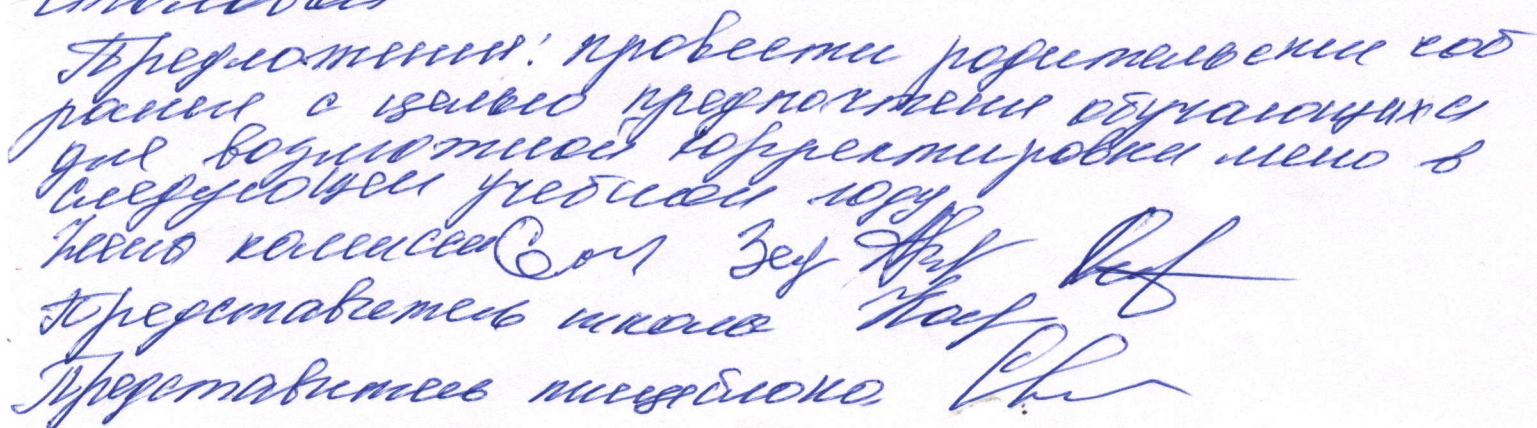 столовая
Предложения: провести родительские соб
рания с целью предпочтения обучающихся
для возможной корректировки меню в
следующем учебном году
Члены комиссии
Представитель школы
Представитель пищеблока